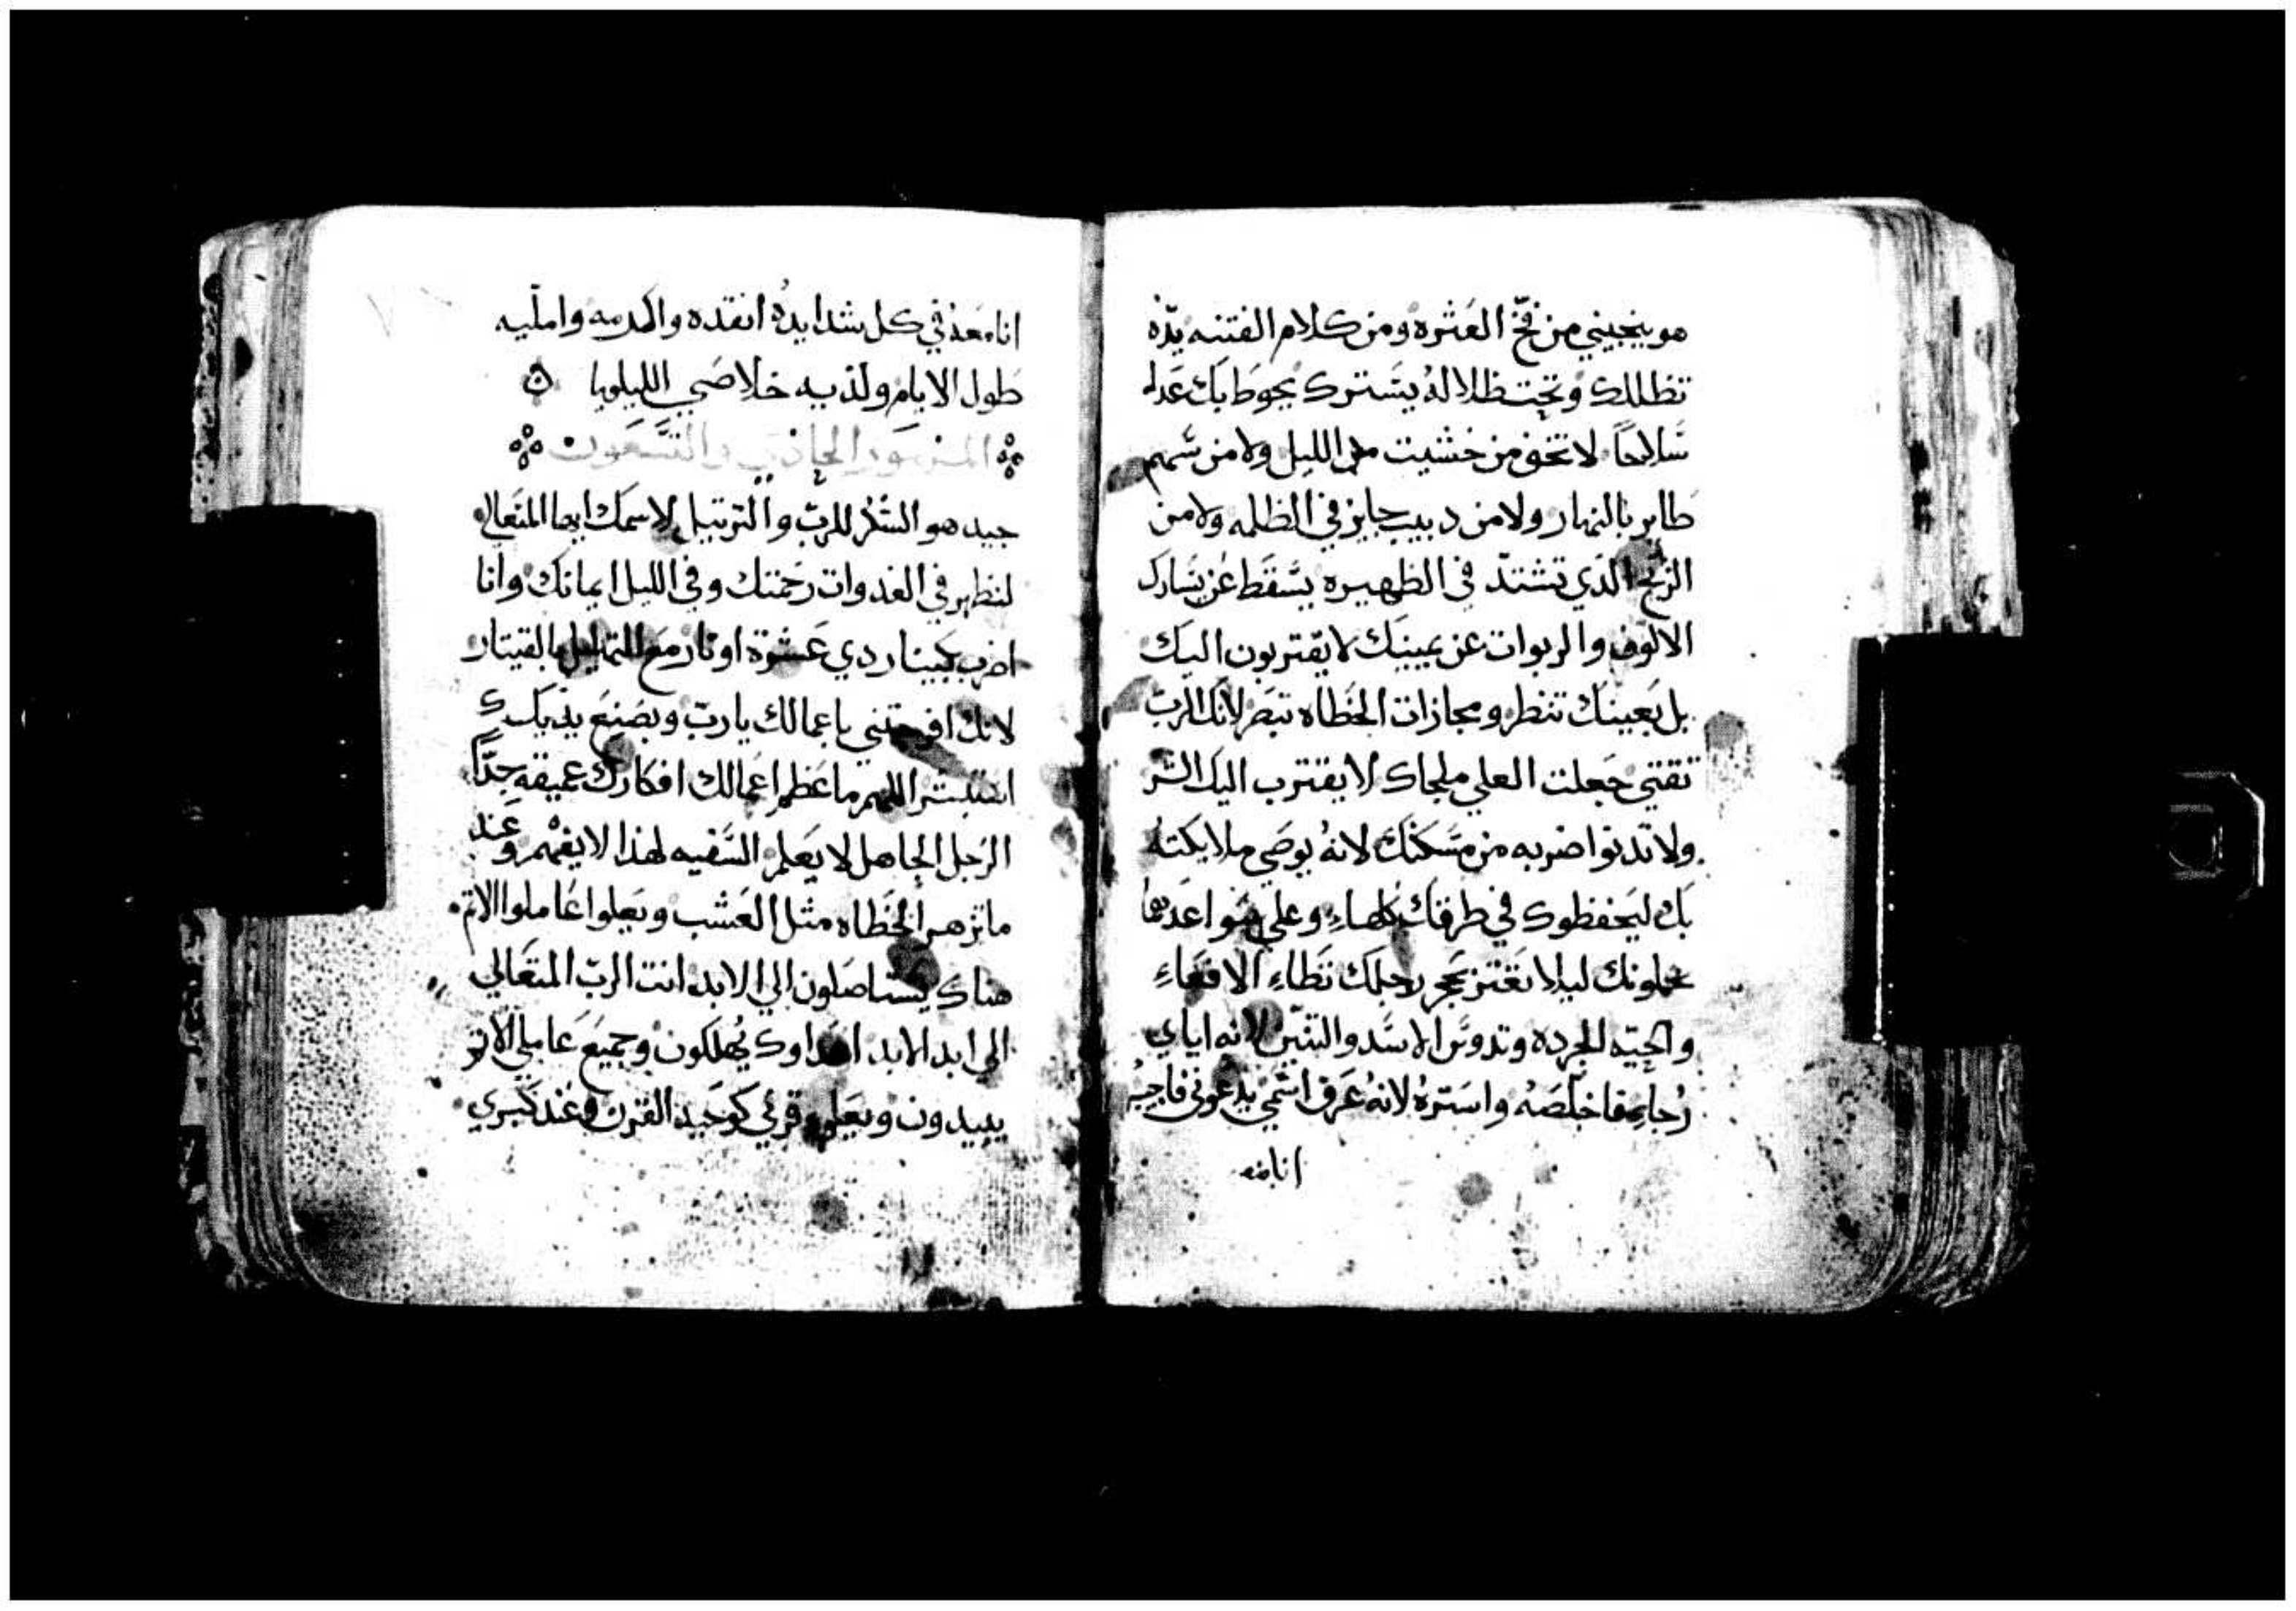 هو ينجيني من فخّ العثره ومن كلام الفتنه يدّه
تظللك وتحت ظلاله يستترك يحوط بك عدله
سلاحاً لا تخف من خشيت الليل ولا من سهم
طاير بالنهار ولا من دبيب جايز في الظلمه ولا من
الريح الذي تشتدّ في الظهيره يسقط عن يسارك
الالوف والربوات عن يمينك لا يقتربون اليك
بل بعينك تنظر ومجازات الخطاه تبصر لانك الرب
ثقتي جعلت العلي ملجاك لا يقترب اليك الشر
ولا تدنوا ضربه من مسكنك لانه يوصي ملايكته
بك ليحفظوك في طرقك كلها وعلي سواعدهما
يحملونك ليلا تعثر بحجر رجلك تطاء الافعاء
والحيّه الجرده وتدوس الاسد والتنين لانه اياي
رجا فاخلصه واستره لانه عرف اسمي يدعوني فاجيبه
انا معه
انا معه في كل شدايده انقده واكرمه واملّيه
طول الايام ولذيه خلاصي الليلويا
المزمور الحاذي والتسعون
جيد هو الشكر للربّ والترتيل لاسمك ايها المتعالي
لنظهر في الغدوات رحمتك وفي الليل ايمانك وانا
اضرب بكيناردي عشرة اوتار مع التهليل بالقيتار
لانك افرحتني باعمالك يا ربّ وبصنع يديك
استبشر اللهم ما عظم اعمالك افكارك عميقه جدّاً
الرجل الجاهل لا يعلم السفيه لهذا لا يفهم وعند
ما تزهر الخطاه مثل العشب ويعلوا عاملوا الاثم
هناك يستاصلون الي الابد انت الربّ المتعالي
الي ابد الابد اعداوك يهلكون وجميع عاملي الاثم
يبيدون ويعلو قرني كوحيد القرن وعند كبري